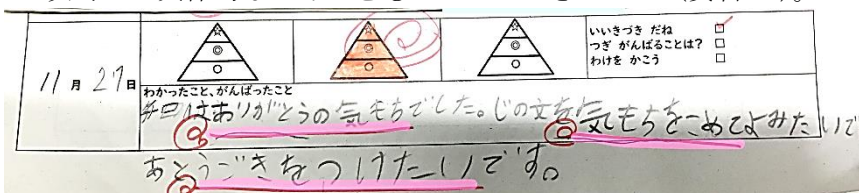 いいきづき だね
つぎ がんばることは?
わけを かこう
11月27日
わかったこと、がんばったこと
はありがとうの気もちでした。じの文を気もちをこめてよみたいで
あとうごきをつけたいです。